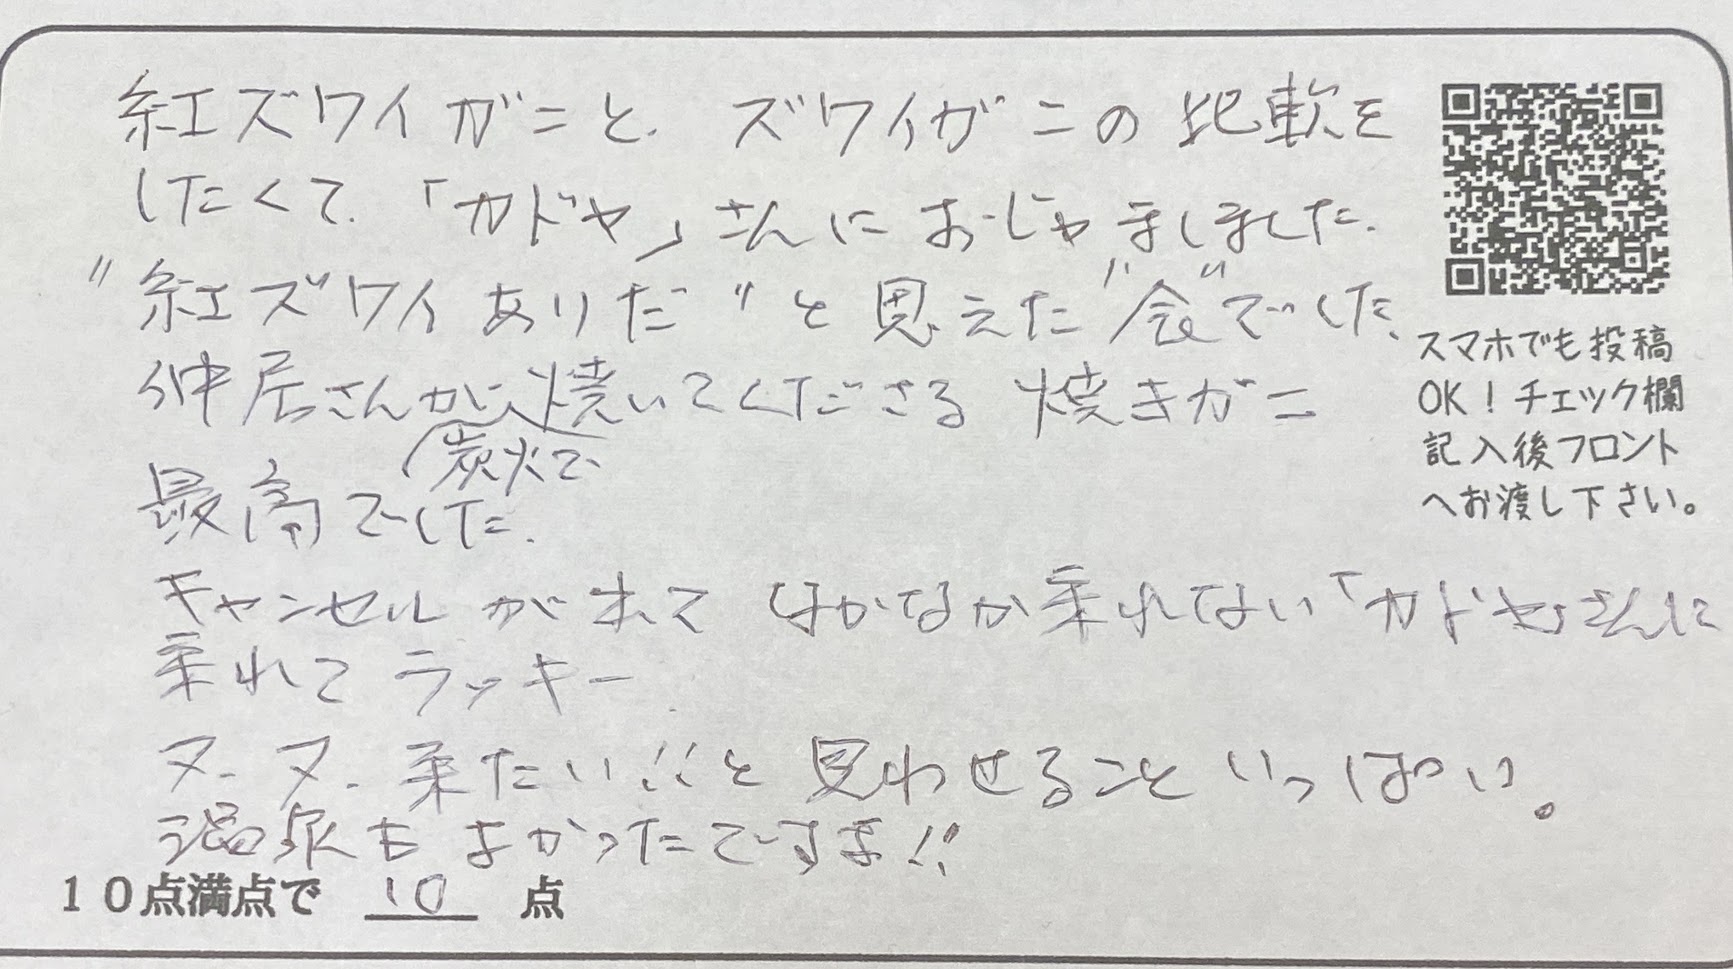 紅ズワイガニと、ズワイガニの比較を
したくて、「カドヤ」さんにおじゃましました。
"紅ズワイありだ"と思えた"会"でした。
仲居さんが、炭火で焼いてくださる 焼きガニ
最高でした。
キャンセルが出て なかなか来れない「カドヤ」さんに
来れて ラッキー
又、又、来たい!!と思わせること いっぱい。
温泉も よかったですよ!!
10点満点で 10 点
スマホでも投稿
OK！チェック欄
記入後フロント
へお渡し下さい。